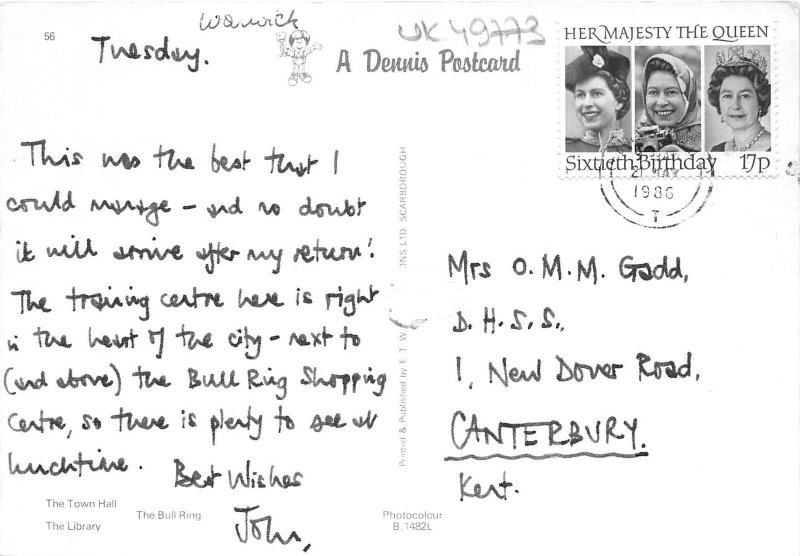 56
Warwick
UK 49773
Tuesday.
A Dennis Postcard
HER MAJESTY THE QUEEN
Sixtieth Birthday 17p
21 MAY
1986
T
This was the best that I
could manage – and no doubt
it will arrive after my return!
The training centre here is right
in the heart of the city – next to
(and above) the Bull Ring Shopping
Centre, so there is plenty to see at
lunchtime.
Best Wishes
John,
Mrs O. M. M. Gadd,
D. H. S. S.,
1, New Dover Road,
CANTERBURY.
Kent.
Printed & Published by E. T. W. NS LTD. SCARBOROUGH
The Town Hall
The Library
The Bull Ring
Photocolour
B.1482L